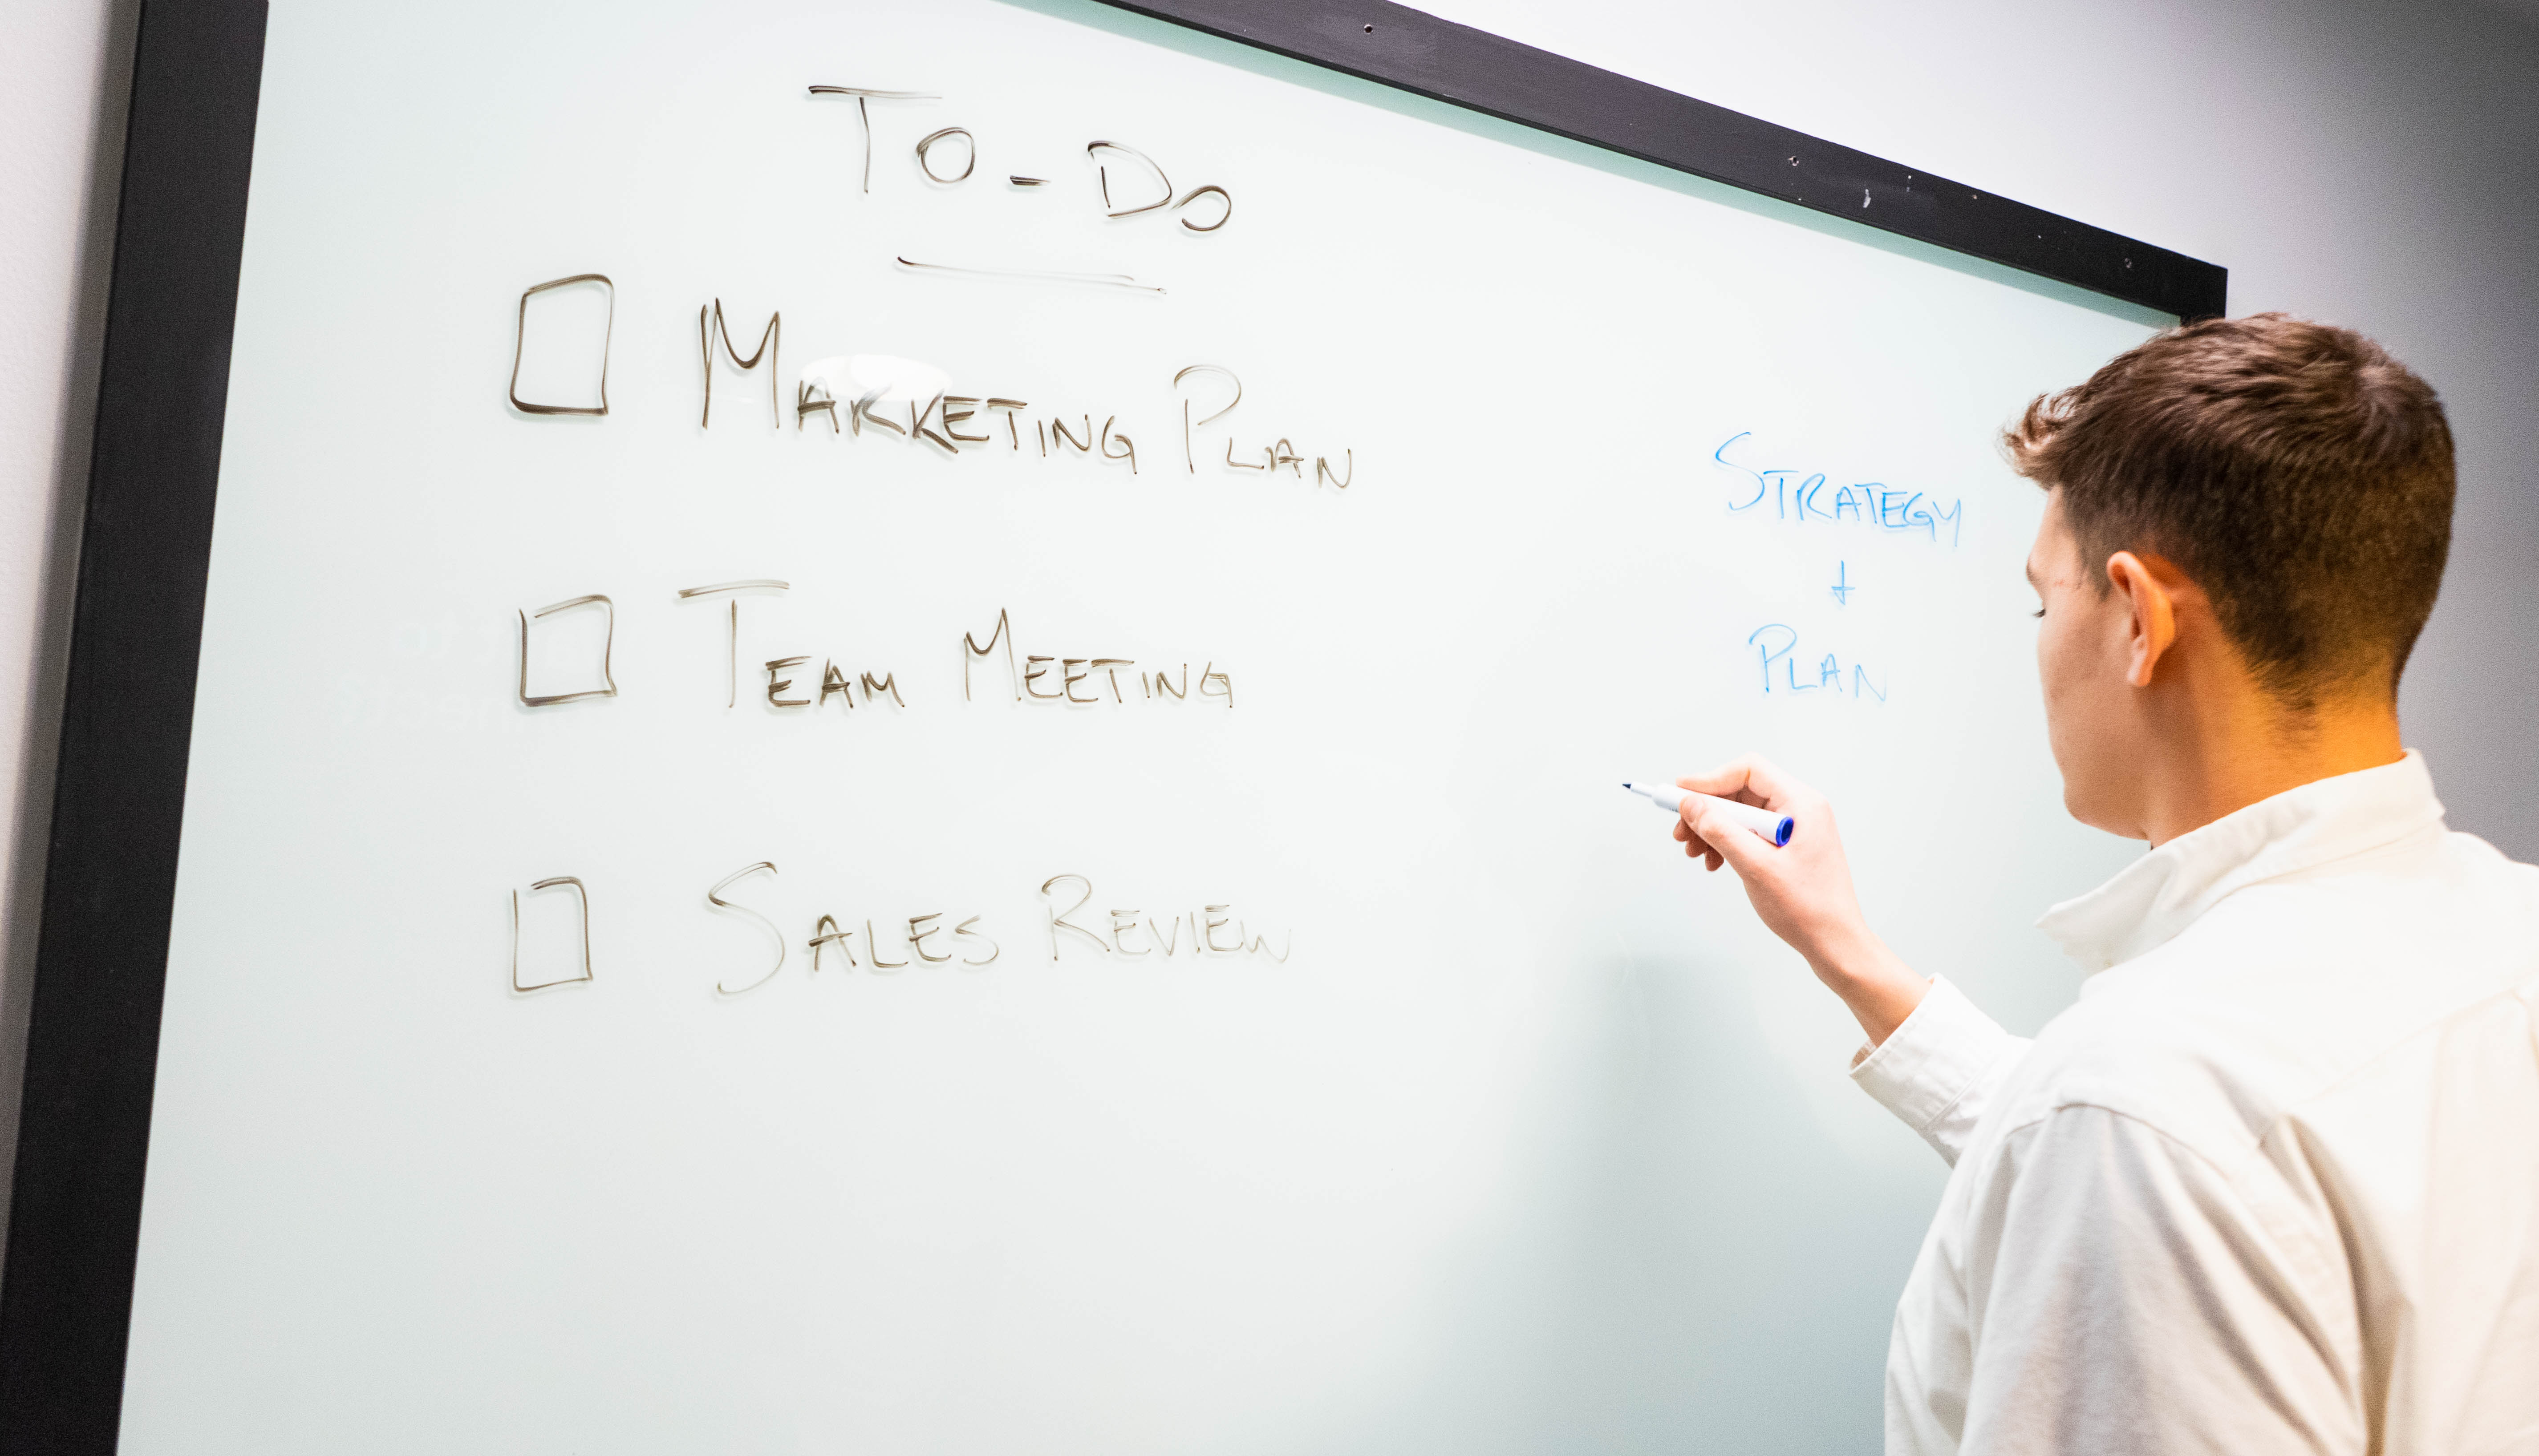 To-Do
Marketing Plan
Team Meeting
Sales Review
Strategy
+
Plan